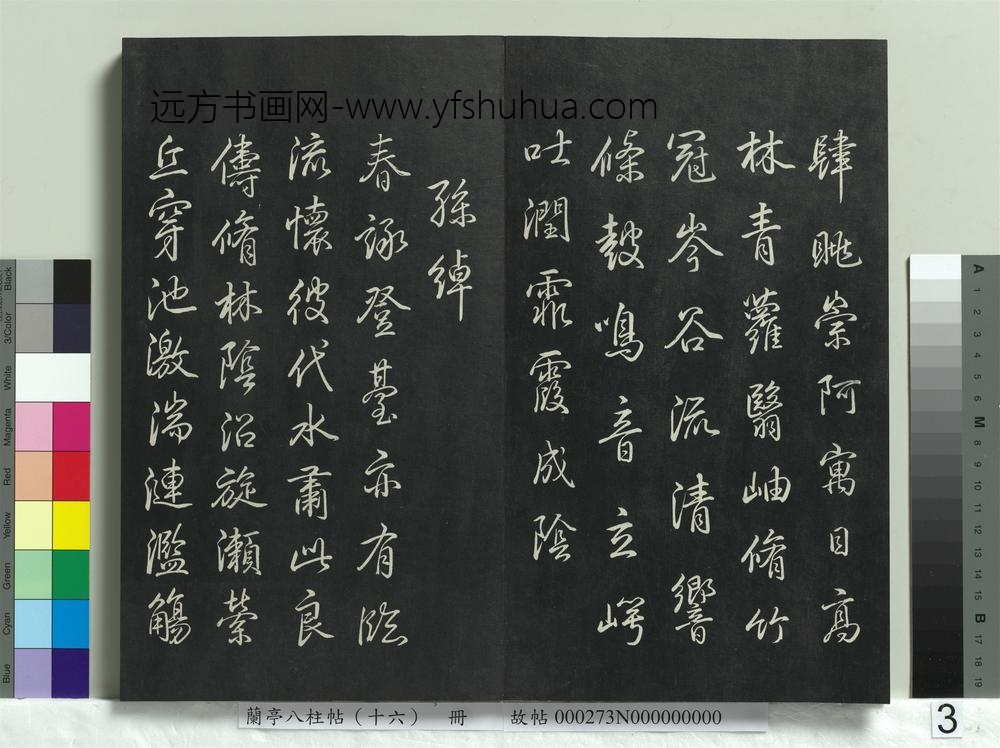 远方书画网-www.yfshuhua.com
肆眺崇阿寓目高
林青蘿翳岫脩竹
冠岑谷流清響
條鼓鳴音玄崿
吐潤霏霞成陰
孫綽
春詠登臺亦有臨
流懷彼伐木肅此良
儔脩林陰沼旋瀨縈
丘穿池激湍連濫觴
蘭亭八柱帖（十六） 冊 故帖 000273N000000000
3
Black
3/Color
White
Magenta
Red
Yellow
Green
Cyan
Blue
A 1 2 3 4 5 6 M 8 9 10 11 12 13 14 15 B 17 18 19